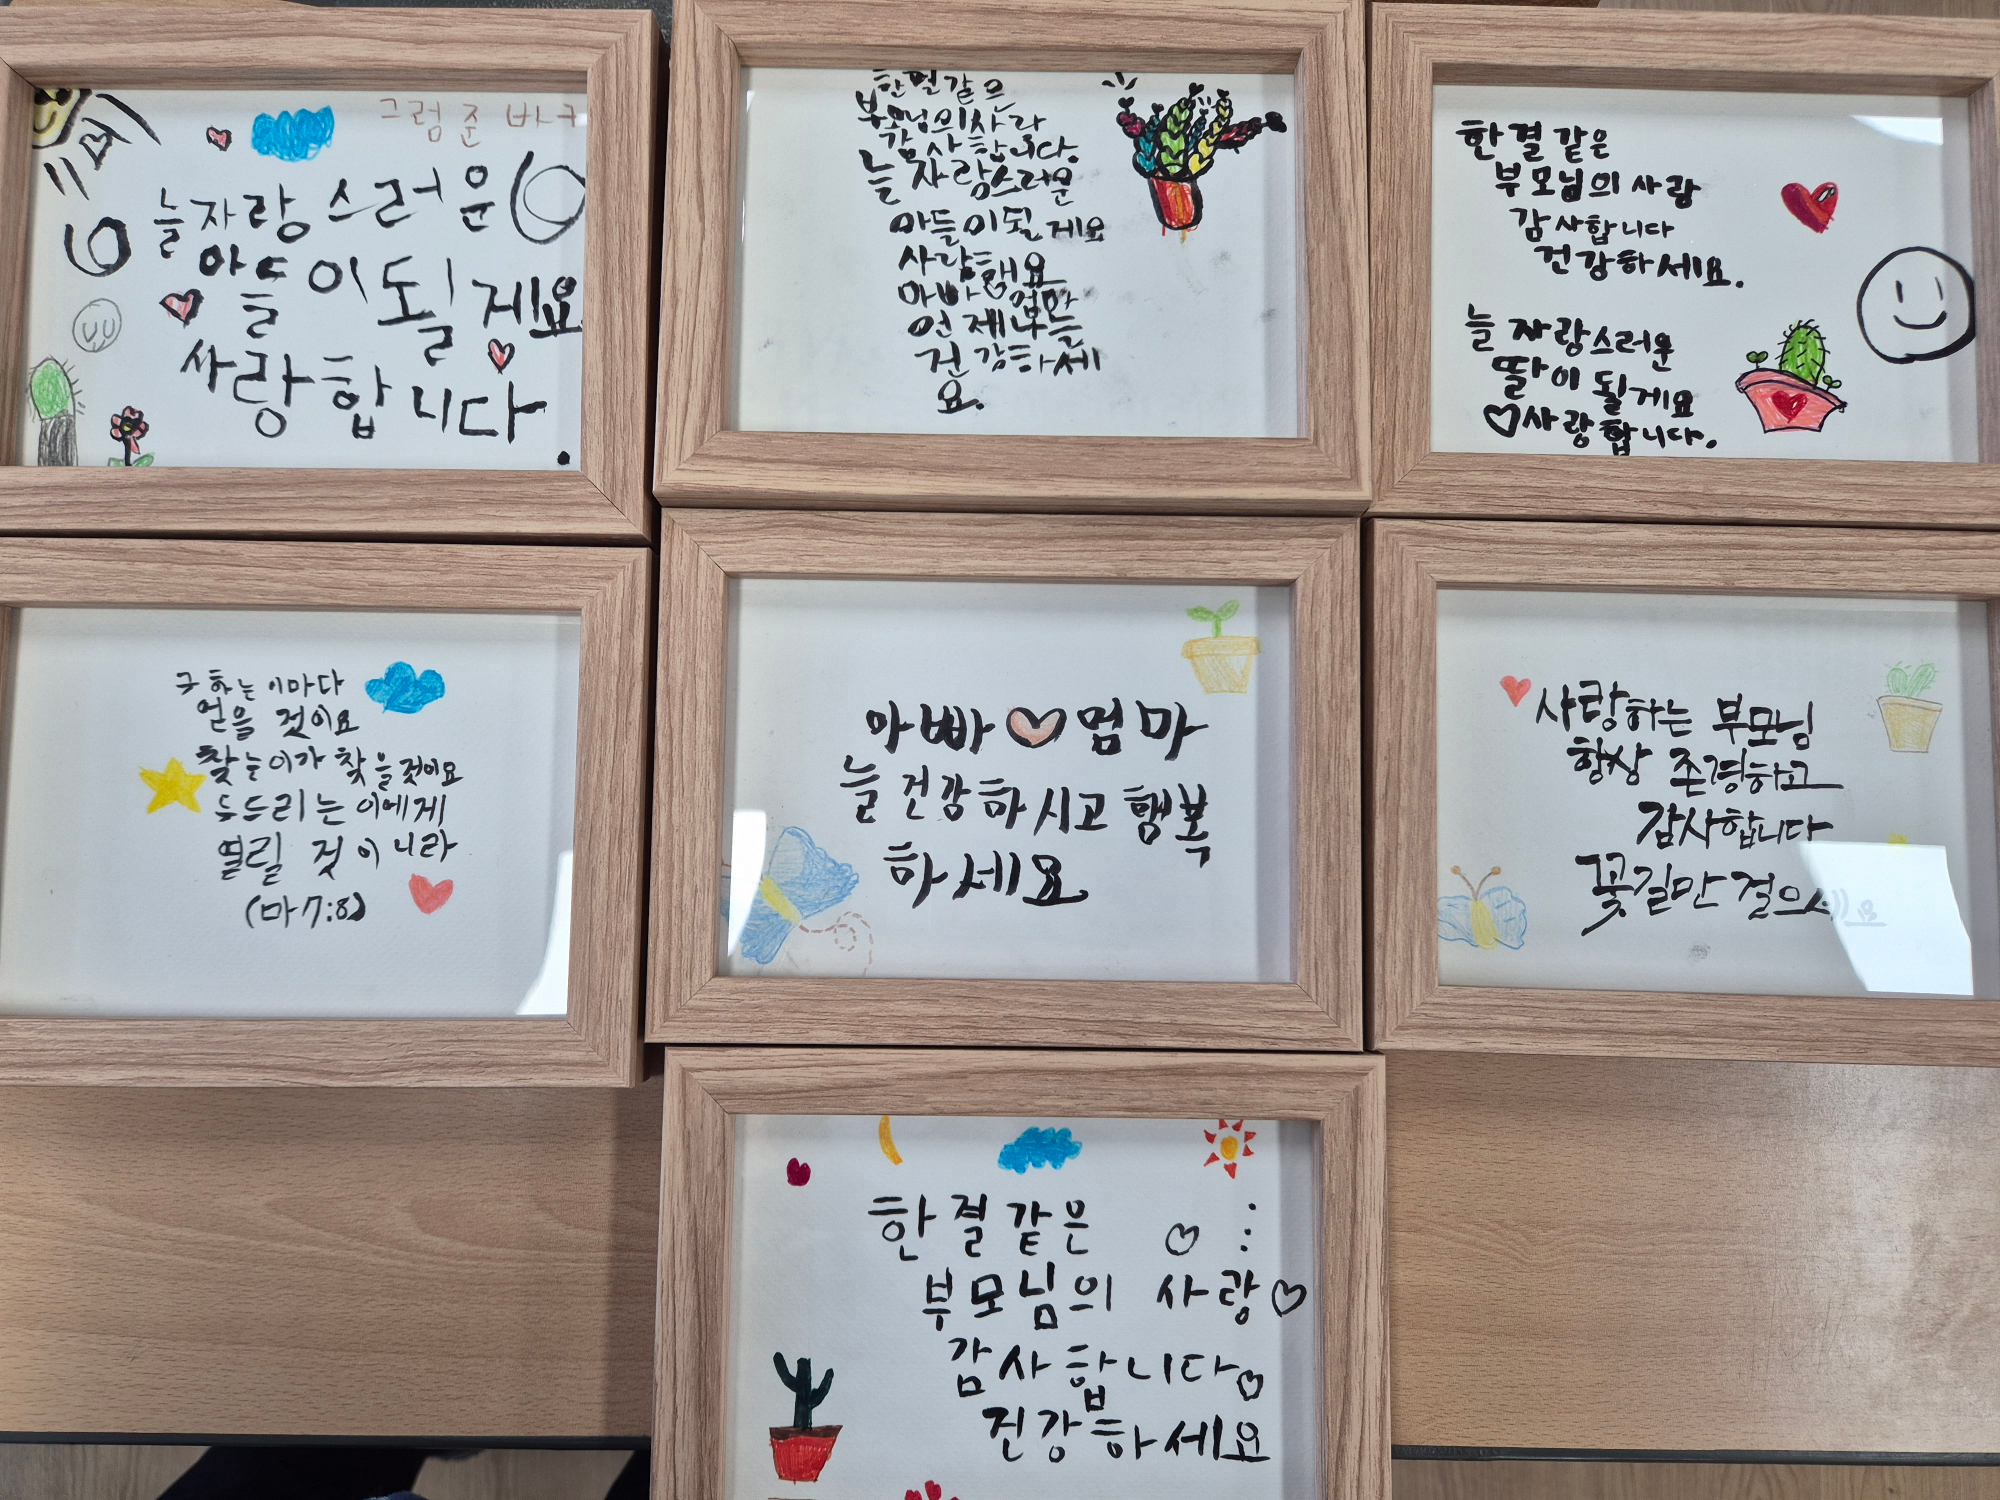 그럼 준 바구
늘 자랑스러운
아들이 될게요
사랑합니다.
한결같은
부모님의 사랑
감사합니다.
늘 자랑스러운
아들이 될게요
사랑해요
아빠 엄마
언제나 늘
건강하세
요.
한결같은
부모님의 사랑
감사합니다
건강하세요.
늘 자랑스러운
딸이 될게요
사랑합니다.
구하는 이마다
얻을 것이요
찾는이가 찾을것이요
두드리는 이에게
열릴 것이니라
(마 7:8)
아빠 엄마
늘 건강하시고 행복
하세요
사랑하는 부모님
항상 존경하고
감사합니다
꽃길만 걸으
한결같은
부모님의 사랑
감사합니다
건강하세요